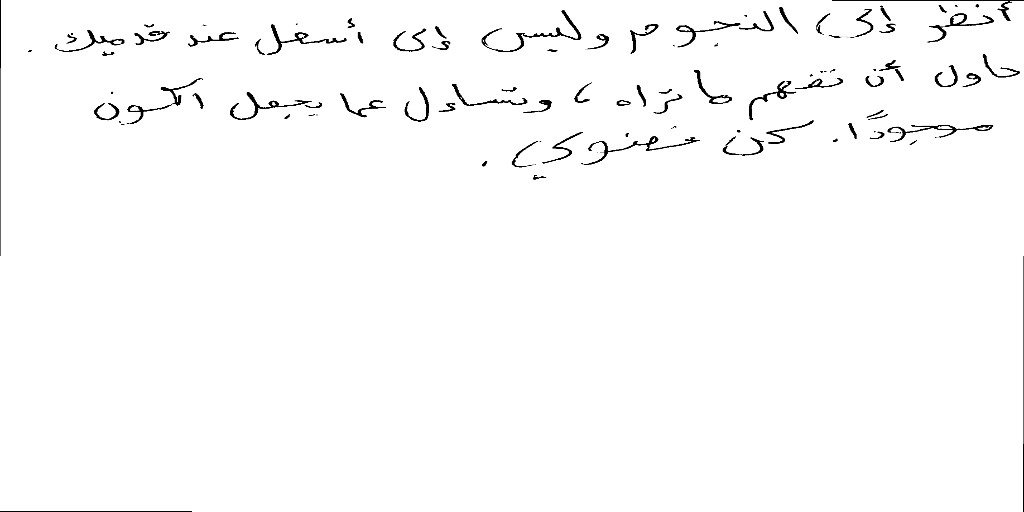 أنظر إلى النجوم وليس إلى أسفل عند قدميك .
حاول أن تفهم ما تراه ، وتساءل عما يجعل الكون
موجودًا. كن فضولي .